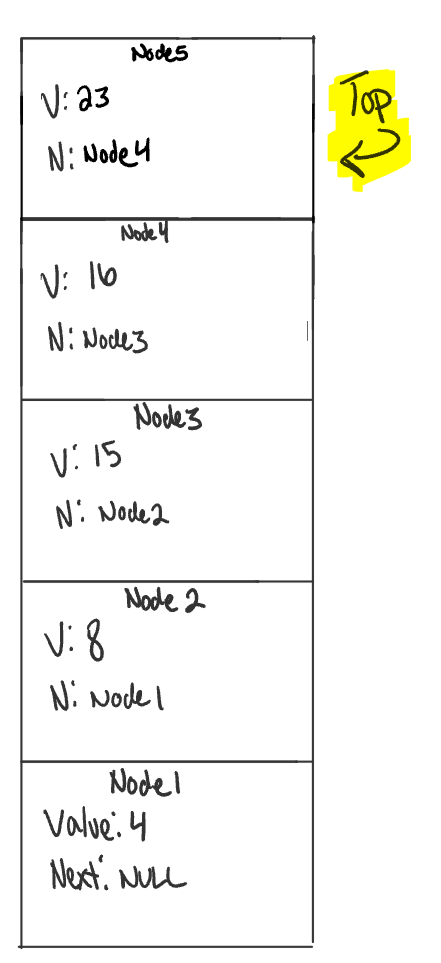 Node5
V: 23
N: Node4
Top
Node4
V: 16
N: Node3
Node3
V: 15
N: Node2
Node 2
V: 8
N: Node1
Node1
Value: 4
Next: NULL